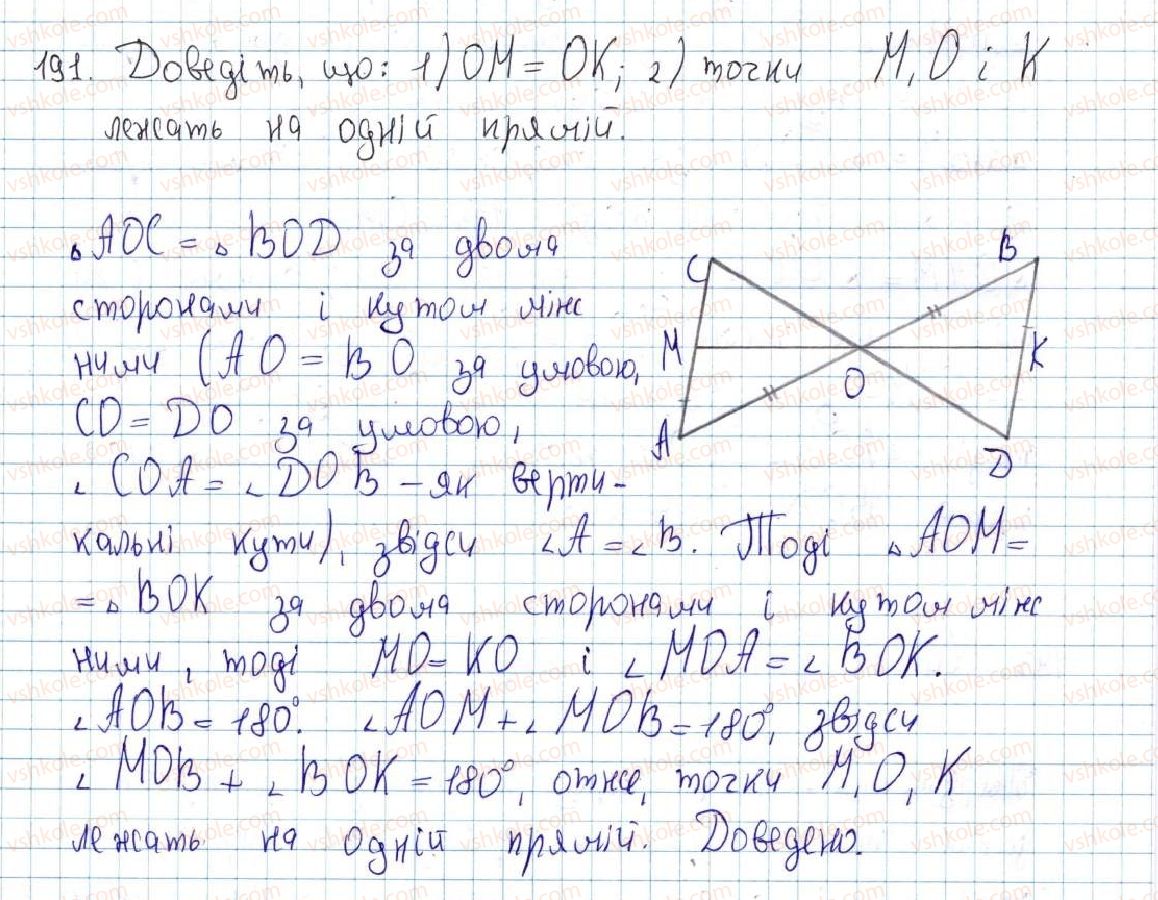 191. Доведіть, що: 1) OM = OK; 2) точки M, O і K
лежать на одній прямій.
△AOC = △BOD за двома
сторонами і кутом між
ними (AO = BO за умовою,
CO = DO за умовою,
∠COA = ∠DOB – як верти-
кальні кути), звідси ∠A = ∠B. Тоді △AOM =
= △BOK за двома сторонами і кутом між
ними, тоді MO = KO і ∠MOA = ∠BOK.
∠AOB = 180°. ∠AOM + ∠MOB = 180°, звідси
∠MOB + ∠BOK = 180°, отже, точки M, O, K
лежать на одній прямій. Доведено.
C
B
M
K
O
A
D
vshkole.com